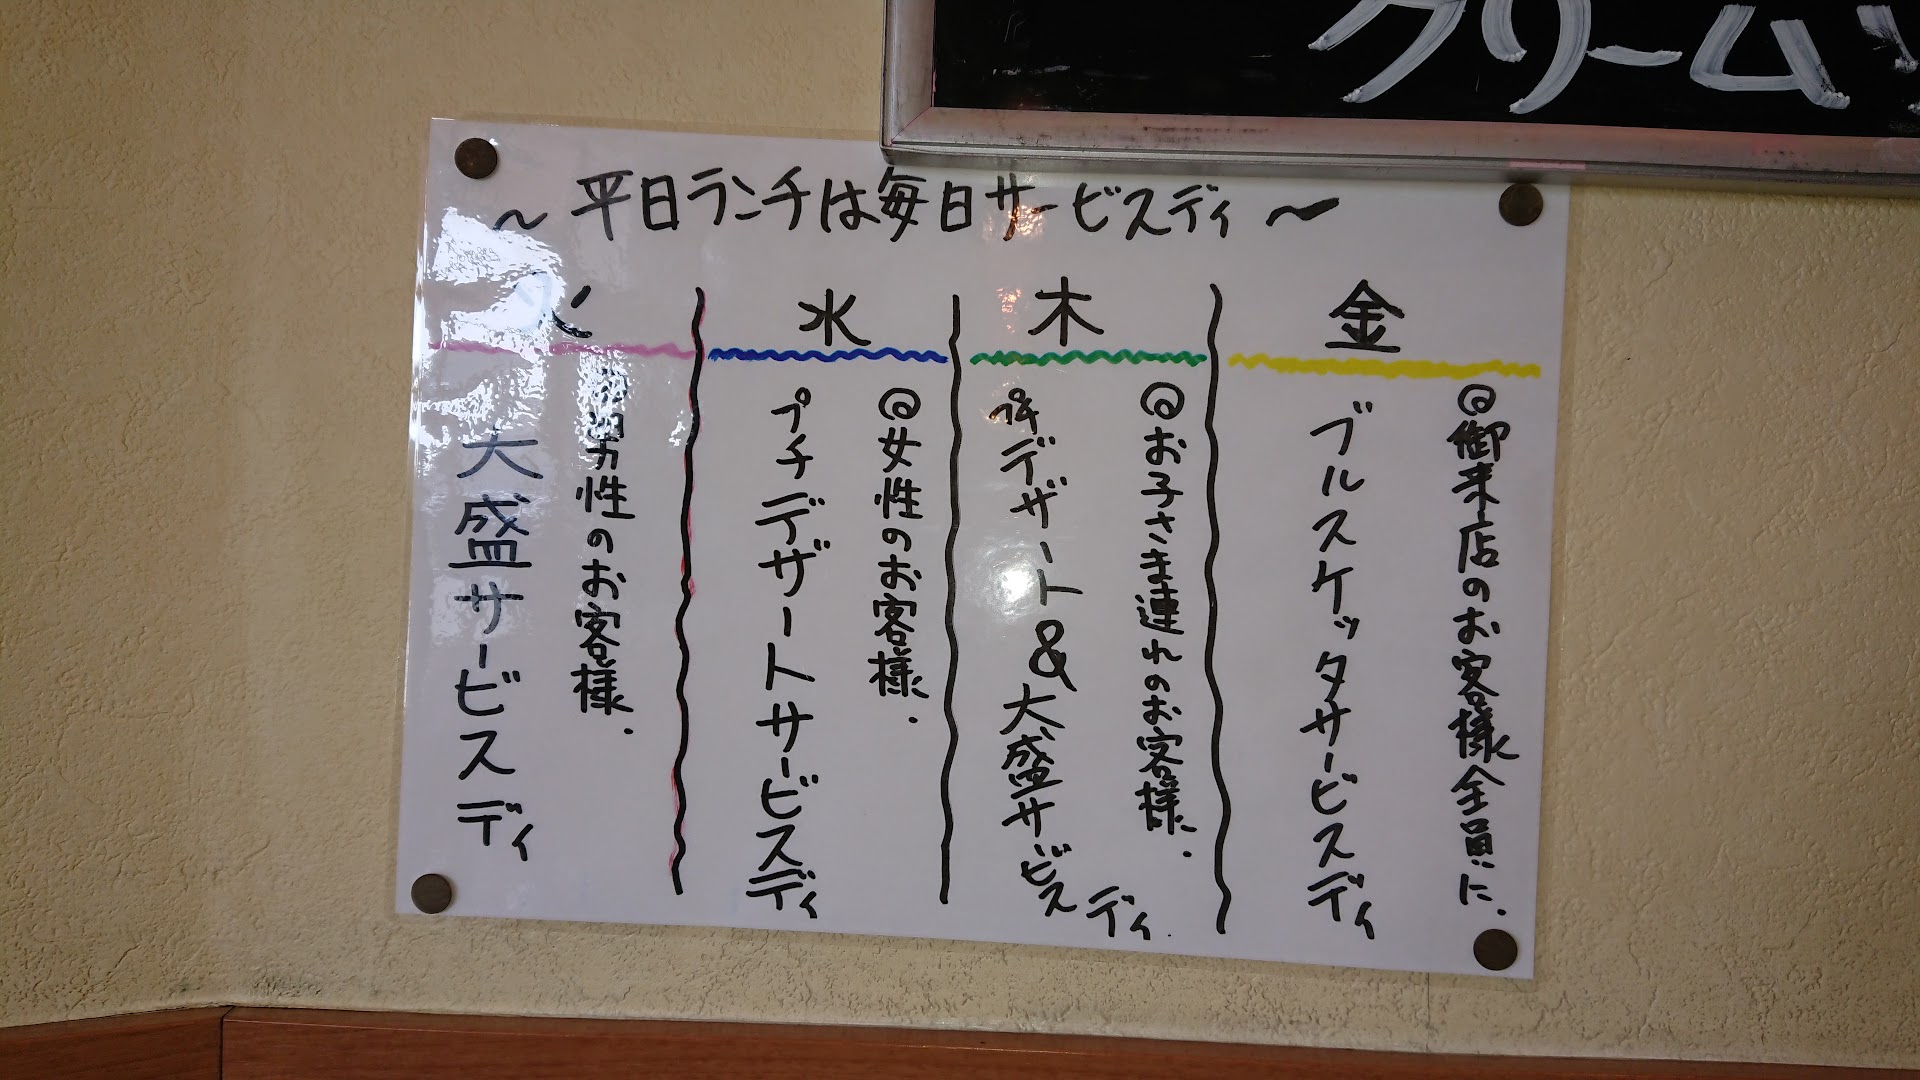 クリーム
～ 平日ランチは毎日サービスディ ～
火
男性のお客様.
大盛サービスディ
水
@女性のお客様.
プチデザートサービスディ
木
@お子さま連れのお客様.
プチデザート&大盛サービスディ.
金
@御来店のお客様全員に.
ブルスケッタサービスディ